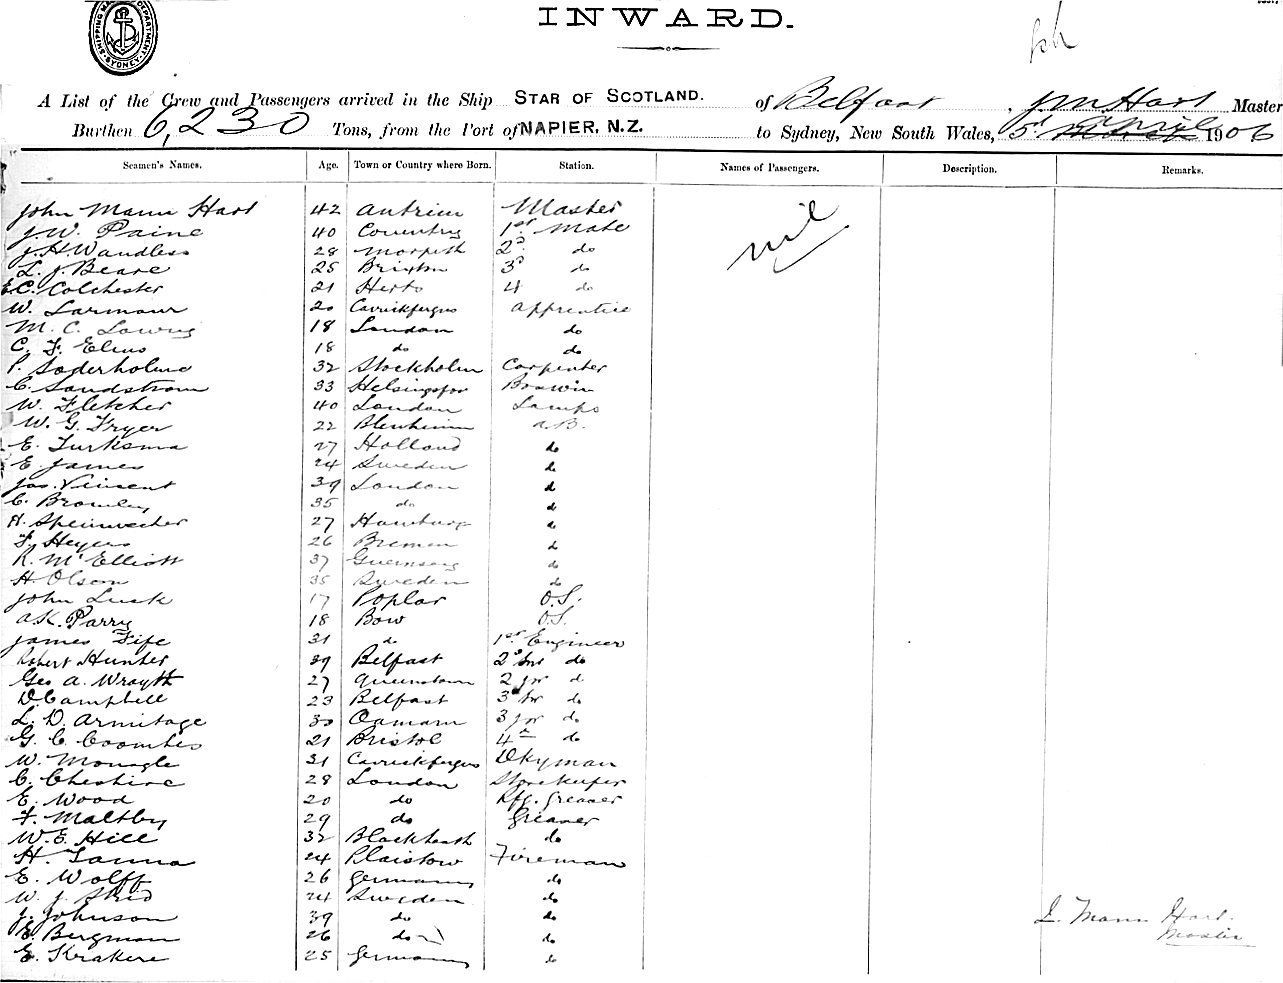 SHIPPING MASTER'S DEPARTMENT SYDNEY
INWARD.
A List of the Crew and Passengers arrived in the Ship STAR OF SCOTLAND. of Belfast, J M Hart Master
Burthen 6,230 Tons, from the Port of NAPIER, N.Z. to Sydney, New South Wales, 5th April 1906
Seamen's Names. Age. Town or Country where Born. Station. Names of Passengers. Description. Remarks.
John Mann Hart 42 Antrim Master nil
J.W. Paine 40 Coventry 1st Mate
J.H. Wandless 28 Morpeth 2d do
L. J. Beare 25 Brixton 3d do
E.C. Colchester 21 Herts 4 do
W. Larmour 20 Carrickfergus Apprentice
M. C. Lowry 18 London do
C. F. Elms 18 do do
P. Soderholme 32 Stockholm Carpenter
C. Sandstrom 33 Helsingfor Boswin
W. Fletcher 40 London Lamps
W. G. Fryer 22 Blenheim A.B.
E. Turksma 27 Holland do
E. James 24 Sweden do
Jas. Vincent 39 London do
C. Bromley 35 do do
H. Speinwecher 27 Hamburg do
F. Heyers 26 Bremen do
R. McElliott 37 Guernsey do
H. Olsen 35 Sweden do
John Lusk 17 Poplar O.S.
A.K. Parry 18 Bow O.S.
James Fife 31 do 1st Engineer
Robert Hunter 39 Belfast 2d Snr do
Geo A. Wrayth 27 Queenstown 2 jnr do
D. Campbell 23 Belfast 3d Snr do
L. D. Armitage 30 Oamaru 3 jnr do
G. C. Coombes 21 Bristol 4th do
W. Monagle 31 Carrickfergus Dkyman
C. Cheshire 28 London Storekeeper
E. Wood 20 do Rfg. Greaser
F. Maltby 29 do Greaser
W.E. Hill 32 Blackheath do
H. Tanna 24 Plaistow Fireman
E. Wolff 26 Germany do
W. J. Skid 24 Sweden do
J. Johnson 39 do do J. Mann Hart.
E. Bergman 26 do do Master
E. Krakere 25 Germany do